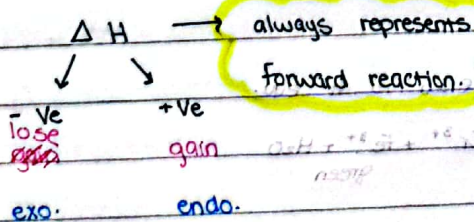 Δ H → always represents
forward reaction.
- ve +ve
lose gain
exo. endo.